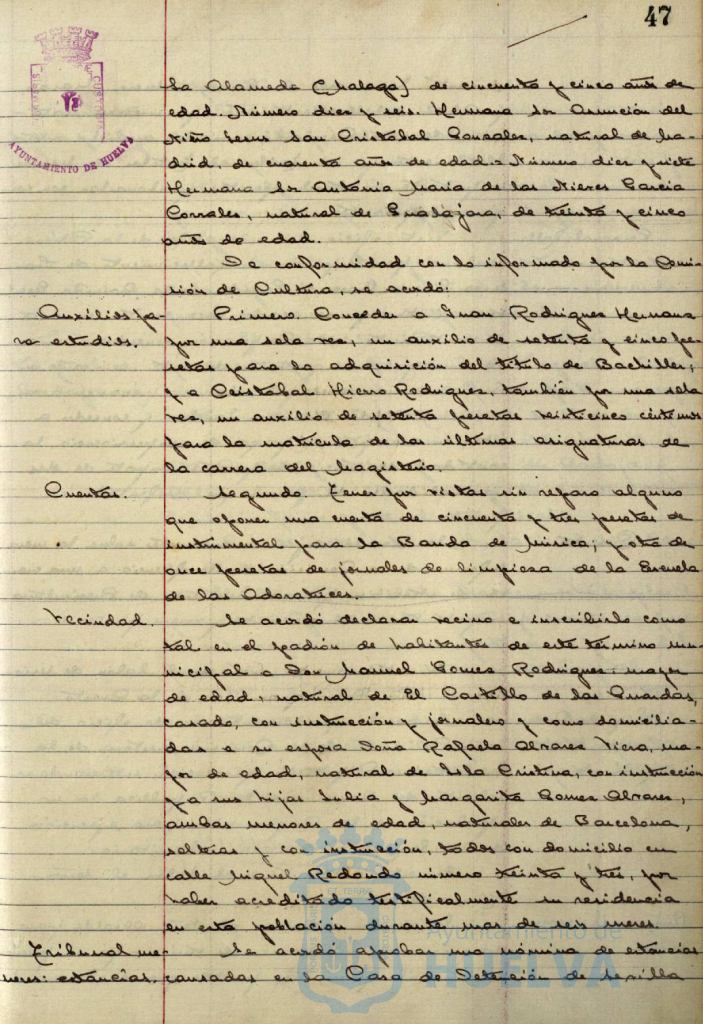 47
AYUNTAMIENTO DE HUELVA
la Alameda (Malaga) de cincuenta y cinco años de
edad. Número diez y seis. Hermana Sor Asunción del
Niño Jesus San Cristobal Gonzalez, natural de Ma-
drid, de cuarenta años de edad = Número diez y siete
Hermana Sor Antonia Maria de las Nieves Garcia
Corrales, natural de Gualajara, de treinta y cinco
años de edad.
De conformidad con lo informado por la Comi-
sión de Cultura, se acordó:
Auxilios pa-
ra estudios.
Primero. Conceder a Juan Rodriguez Hermana
por una sola vez, un auxilio de setenta y cinco pe-
setas para la adquisición del título de Bachiller;
y a Cristobal Hierro Rodriguez, también por una sola
vez, un auxilio de setenta pesetas veinticinco céntimos
para la matricula de las últimas asignaturas de
la carrera del Magisterio.
Cuentas.
Segundo. Tener por vistas sin reparo alguno
que oponer una cuenta de cincuenta y tres pesetas de
instrumental para la Banda de Música; y otra de
once pesetas de jornales de limpieza de la Escuela
de las Adoratrices.
Vecindad.
Se acordó declarar vecino e inscribirlo como
tal en el padrón de habitantes de este término mu-
nicipal a Don Manuel Gomez Rodriguez, mayor
de edad, natural de El Castillo de las Guardas,
casado, con instrucción y jornalero y como domicilia-
das a su esposa Doña Rafaela Alvarez Viera, ma-
yor de edad, natural de Isla Cristina, con instrucción
y a sus hijas Julia y Margarita Gomez Alvarez,
ambas menores de edad, naturales de Barcelona,
solteras y con instrucción, todos con domicilio en
calle Miguel Redondo número treinta y tres, por
haber acreditado testificalmente su residencia
en esta población durante mas de seis meses.
Tribunal me-
nores: estancias.
Se acordó aprobar una nómina de estancias
causadas en la Casa de Detención de Sevilla
Ayuntamiento de
HUELVA